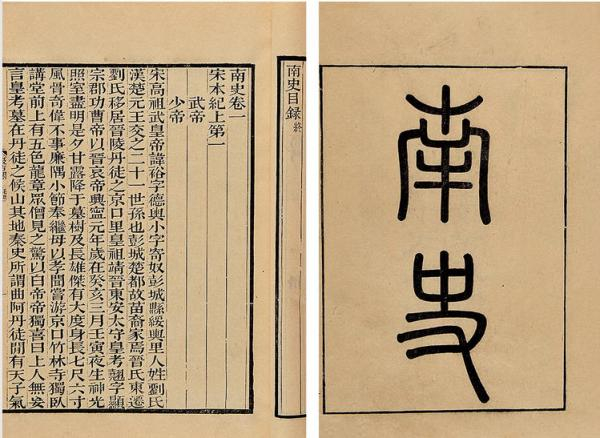 南史
南史目録 終
南史卷一
宋本紀上第一
武帝
少帝
宋高祖武皇帝諱裕字德輿小字寄奴彭城縣綏輿里人姓劉氏
漢楚元王交之二十一世孫也彭城楚都故苗裔家焉晉氏東遷
劉氏移居晉陵丹徒之京口里皇祖靖晉東安太守皇考翹字顯
宗郡功曹帝以晉哀帝興寧元年歲在癸亥三月壬寅夜生神光
照室盡明是夕甘露降于墓樹及長雄傑有大度身長七尺六寸
風骨奇偉不事廉隅小節奉繼母以孝聞嘗游京口竹林寺獨臥
講堂前上有五色龍章眾僧見之驚以白帝帝獨喜曰上人無妄
言皇考墓在丹徒之候山其地秦史所謂曲阿丹徒間有天子氣